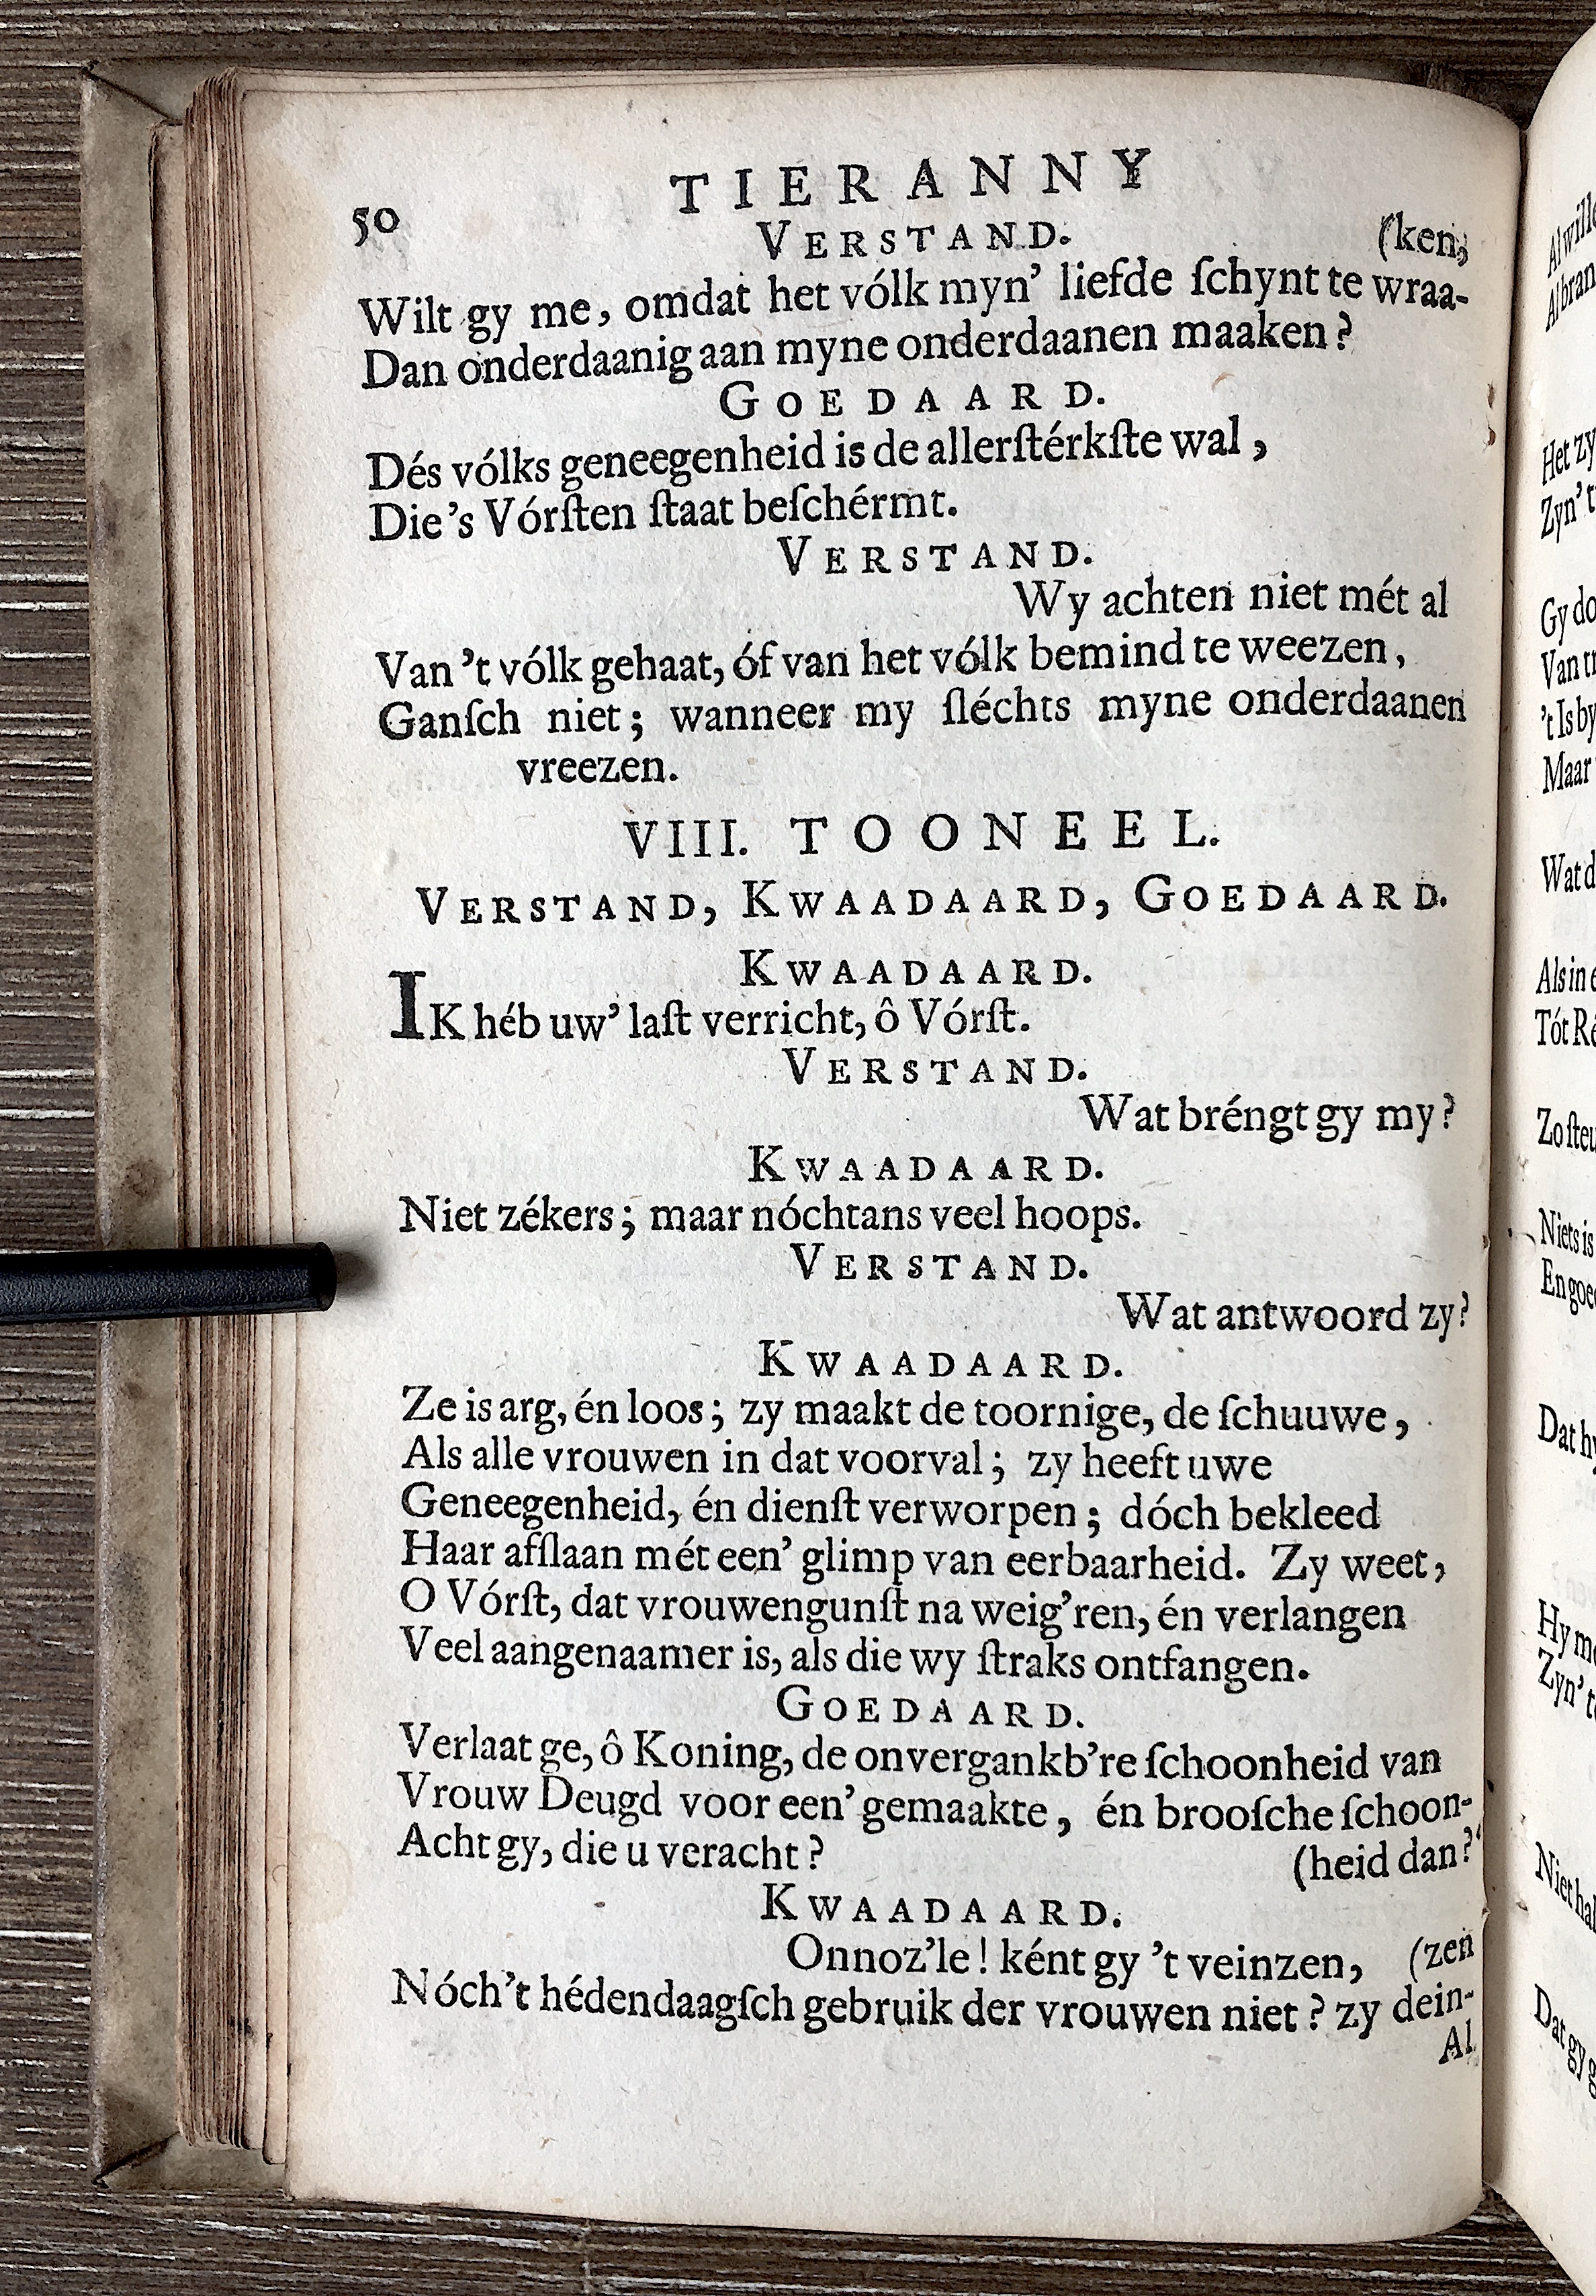 50
TIERANNY
VERSTAND.
(ken,
Wilt gy me, omdat het vólk myn' liefde ſchynt te wraa-
Dan onderdaanig aan myne onderdaanen maaken?
GOEDAARD.
Dés vólks geneegenheid is de allerſtérkſte wal,
Die 's Vórſten ſtaat beſchérmt.
VERSTAND.
Wy achten niet mét al
Van 't vólk gehaat, óf van het vólk bemind te weezen,
Ganſch niet; wanneer my ſléchts myne onderdaanen
vreezen.
VIII. TOONEEL.
VERSTAND, KWAADAARD, GOEDAARD.
KWAADAARD.
IK héb uw' laſt verricht, ô Vórſt.
VERSTAND.
Wat bréngt gy my?
KWAADAARD.
Niet zékers; maar nóchtans veel hoops.
VERSTAND.
Wat antwoord zy?
KWAADAARD.
Ze is arg, én loos; zy maakt de toornige, de ſchuuwe,
Als alle vrouwen in dat voorval; zy heeft uwe
Geneegenheid, én dienſt verworpen; dóch bekleed
Haar afſlaan mét een' glimp van eerbaarheid. Zy weet,
O Vórſt, dat vrouwengunſt na weig'ren, én verlangen
Veel aangenaamer is, als die wy ſtraks ontfangen.
GOEDAARD.
Verlaat ge, ô Koning, de onvergankb're ſchoonheid van
Vrouw Deugd voor een' gemaakte, én brooſche ſchoon-
Acht gy, die u veracht?
(heid dan?
KWAADAARD.
Onnoz'le!ként gy 't veinzen,
(zen
Nóch 't hédendaagſch gebruik der vrouwen niet? zy dein-
Al
Het zy
Gy do
't Is by
Maar
Wat d
Als in
Niets is
Dat gy